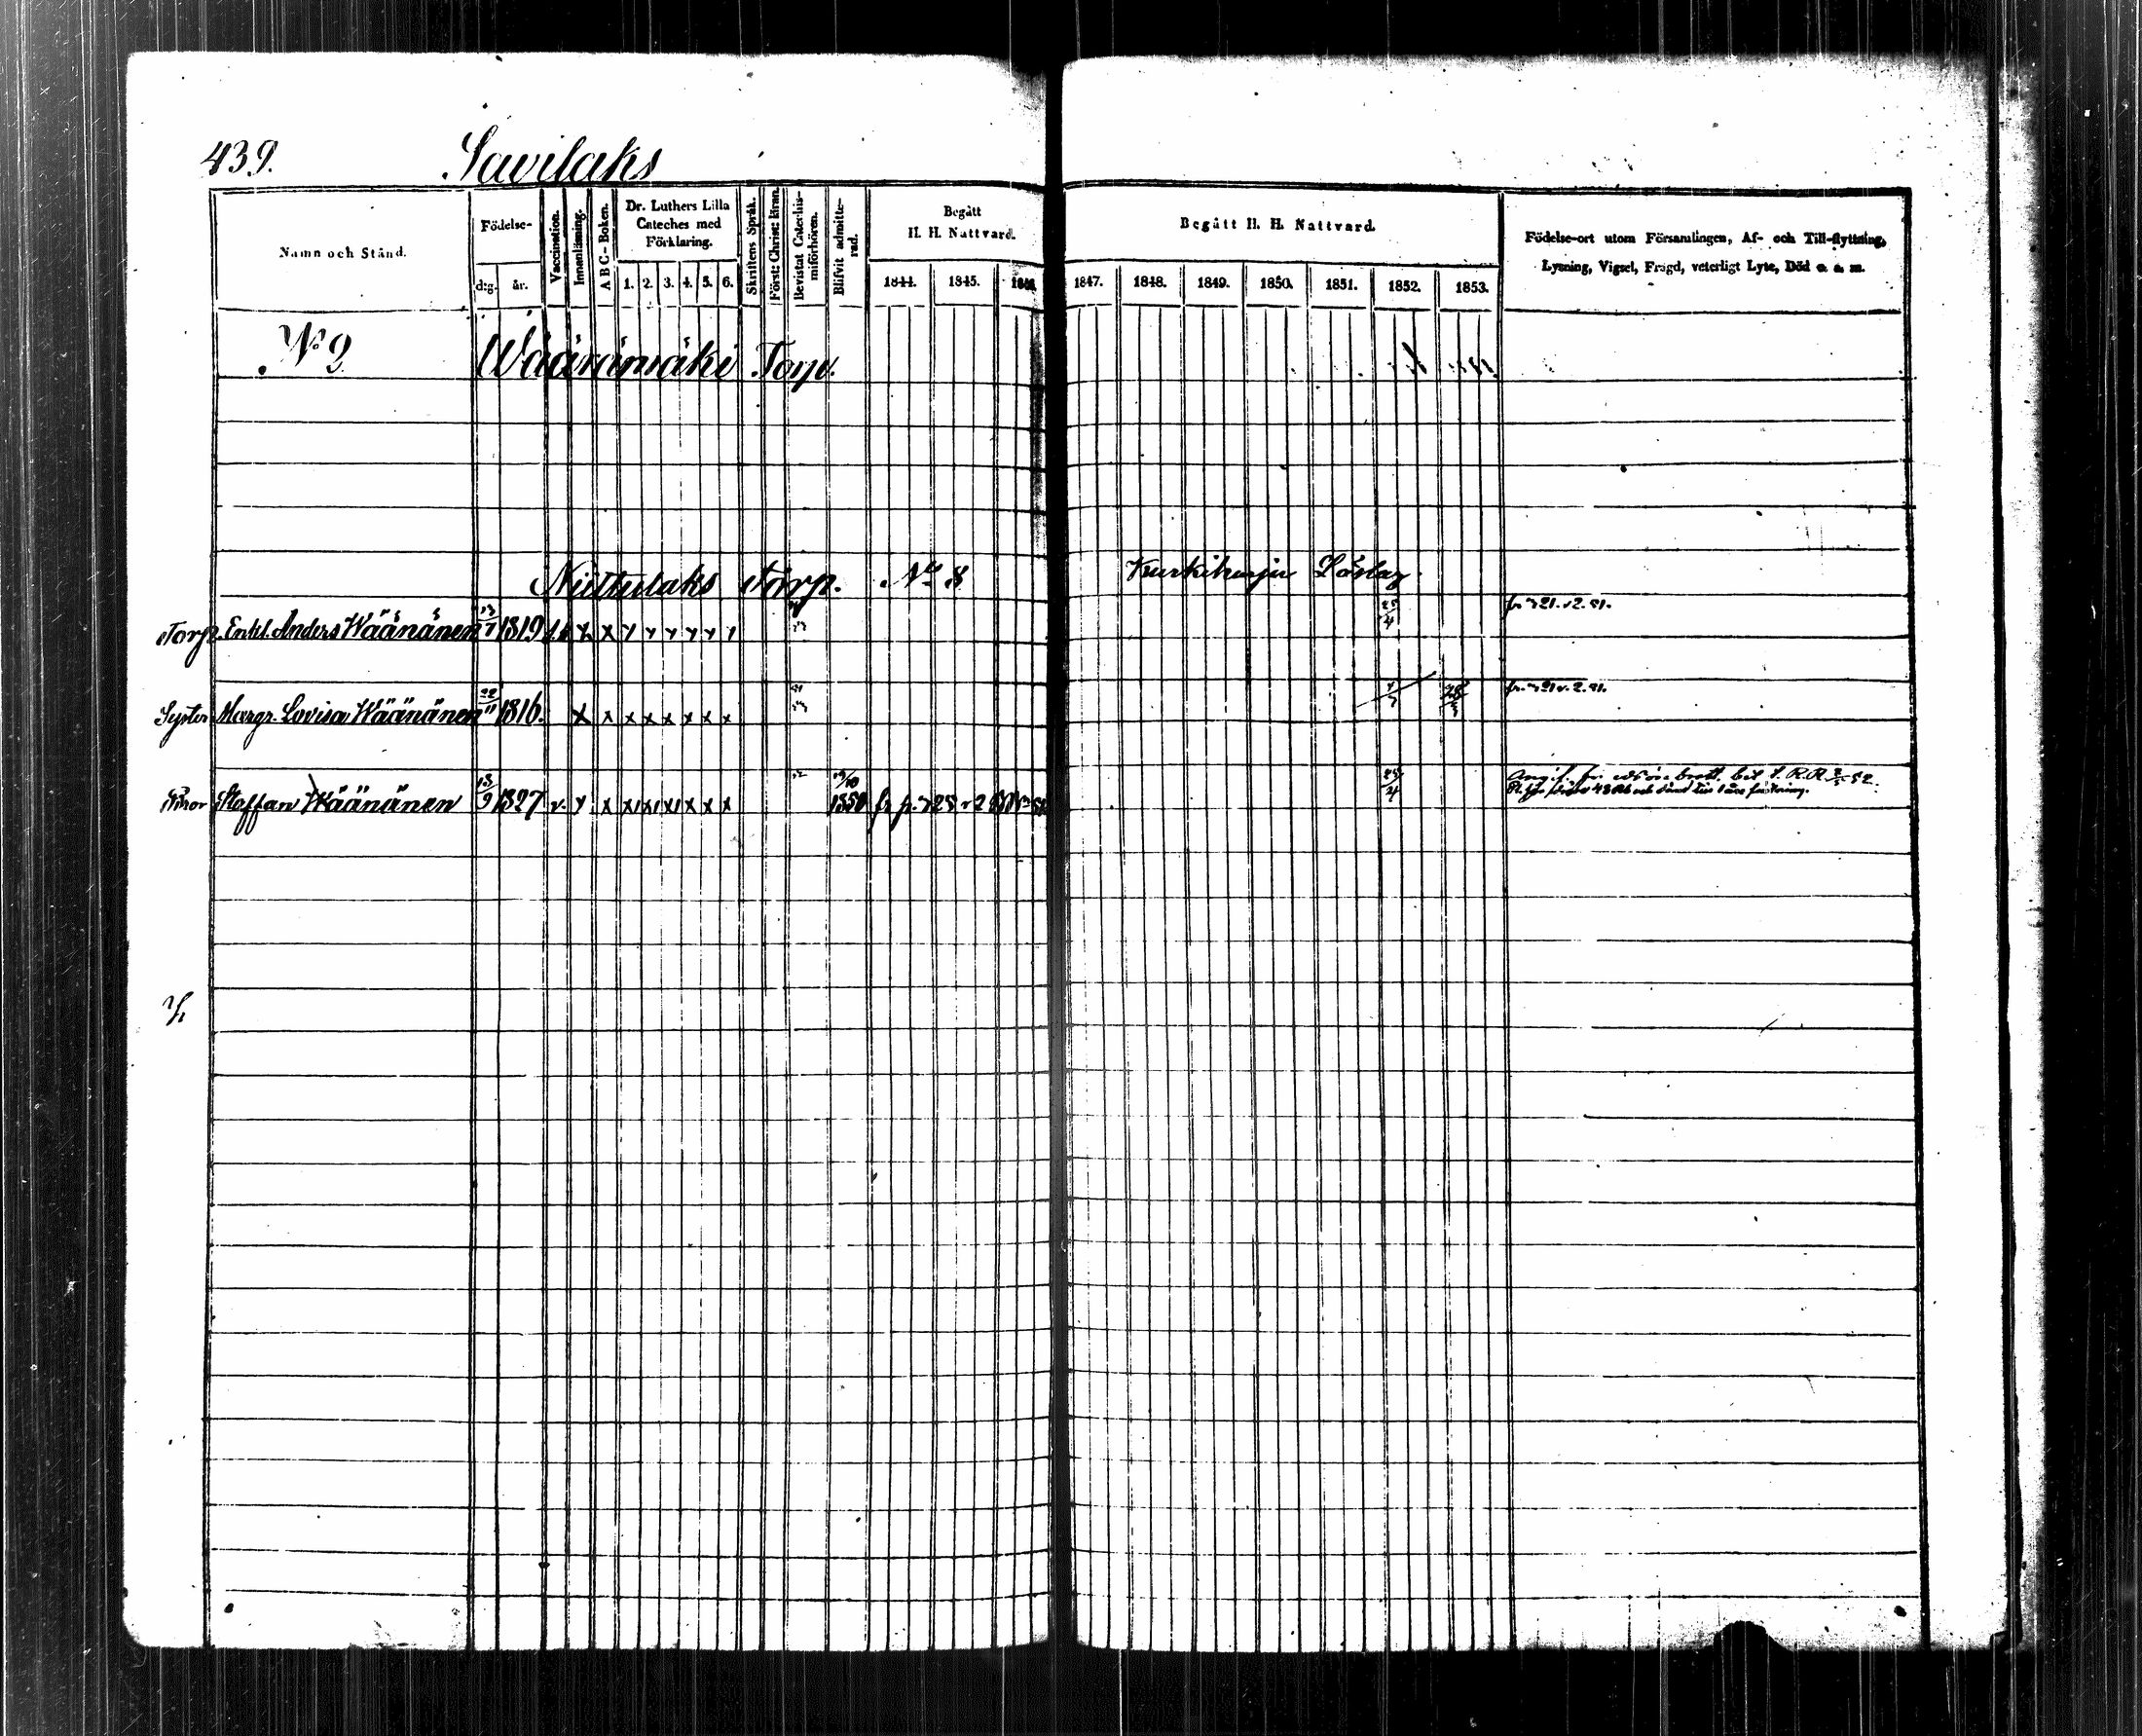 439. Savilaks
Namn och Stånd.
Födelse-
dag. år.
Vaccination.
Innanläsning.
A B C-Boken.
Dr. Luthers Lilla
Cateches med
Förklaring.
1. 2. 3. 4. 5. 6.
Skriftens Språk.
Bevistat Catechis-
miförhören.
Blifvit admitte-
rad.
Begått
H. H. Nattvard.
1844. 1845. 1846.
Begått H. H. Nattvard.
1847. 1848. 1849. 1850. 1851. 1852. 1853.
Födelse-ort utom Församlingen, Af- och Till-flyttning,
Lysning, Vigsel, Frägd, veterligt Lyte, Död o. s. m.
No 2 Wäärämäki Torp.
Niittulaks Torp. No 8
Torp. Enkl. Anders Wäänänen 1819 x x y y y y y 25/4
Syster Margr. Lovisa Wäänänen 22/11 1816. x x x x x x x x
Bror Staffan Wäänänen 13/9 1827 v. y x x x x x x x 1850 25/4